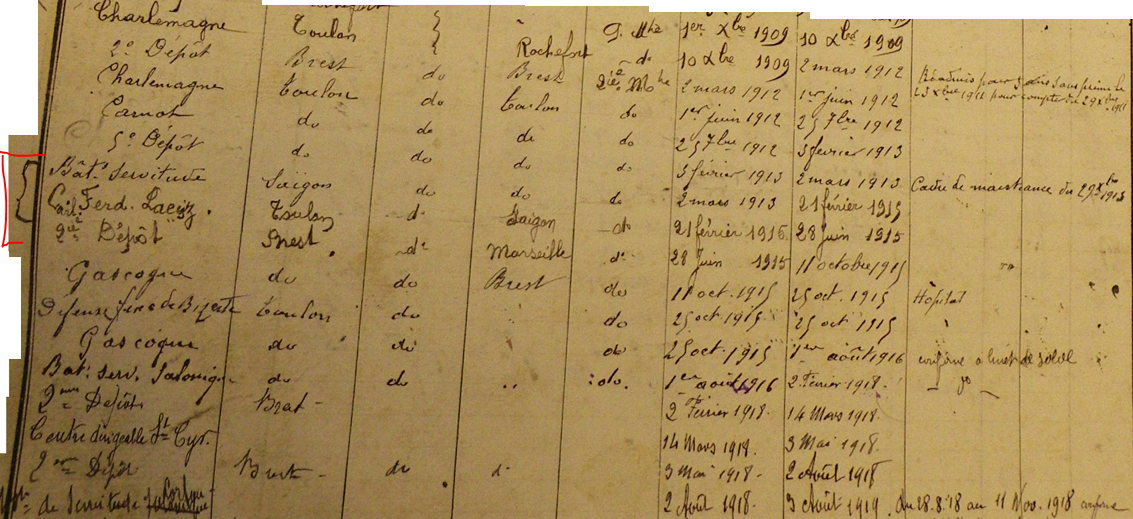 Charlemagne Toulon 2e Mtre 1er Xbre 1909 10 Xbre 1909
2e Dépôt Brest Rochefort do 10 Xbre 1909 2 mars 1912
Charlemagne Toulon do Brest 2 mars 1912 1er juin 1912 Réadmis pour 3 ans sans prime le
Carnot do do Toulon do 1er juin 1912 25 7bre 1912 23 Xbre 1911 pour compter du 29 Xbre 1911
5e Dépôt do do do do 25 7bre 1912 5 février 1913
Bât. Servitude Saïgon do do do 5 février 1913 2 mars 1913 Cadre de maistrance du 29 Xbre 1913
Ferd. Laeisz. Toulon do Saïgon do 2 mars 1913 21 février 1915
2e Dépôt Brest do Marseille do 21 février 1915 28 juin 1915
Gascogne do do Brest do 28 Juin 1915 11 octobre 1915
Défense fixe de Bizerte Toulon do do 11 oct. 1915 25 oct. 1915 Hôpital
Gascogne do do do 25 oct 1915 25 oct 1915
Bât. serv. Salonique do do " do. 25 oct. 1915 1er août 1916 conforme a livret de solde
2me Dépôt Brest - 1er août 1916 2 Février 1918. do
Centre dirigeable St Cyr. 2 Février 1918. 14 Mars 1918.
2me Dépôt Brest - do d- 14 Mars 1918 3 Mai 1918.
3 Mai 1918 - 2 Août 1918
de Servitude 2 Août 1918. 3 Août 1919. du 28.8.18 au 11 Nov. 1918 conforme